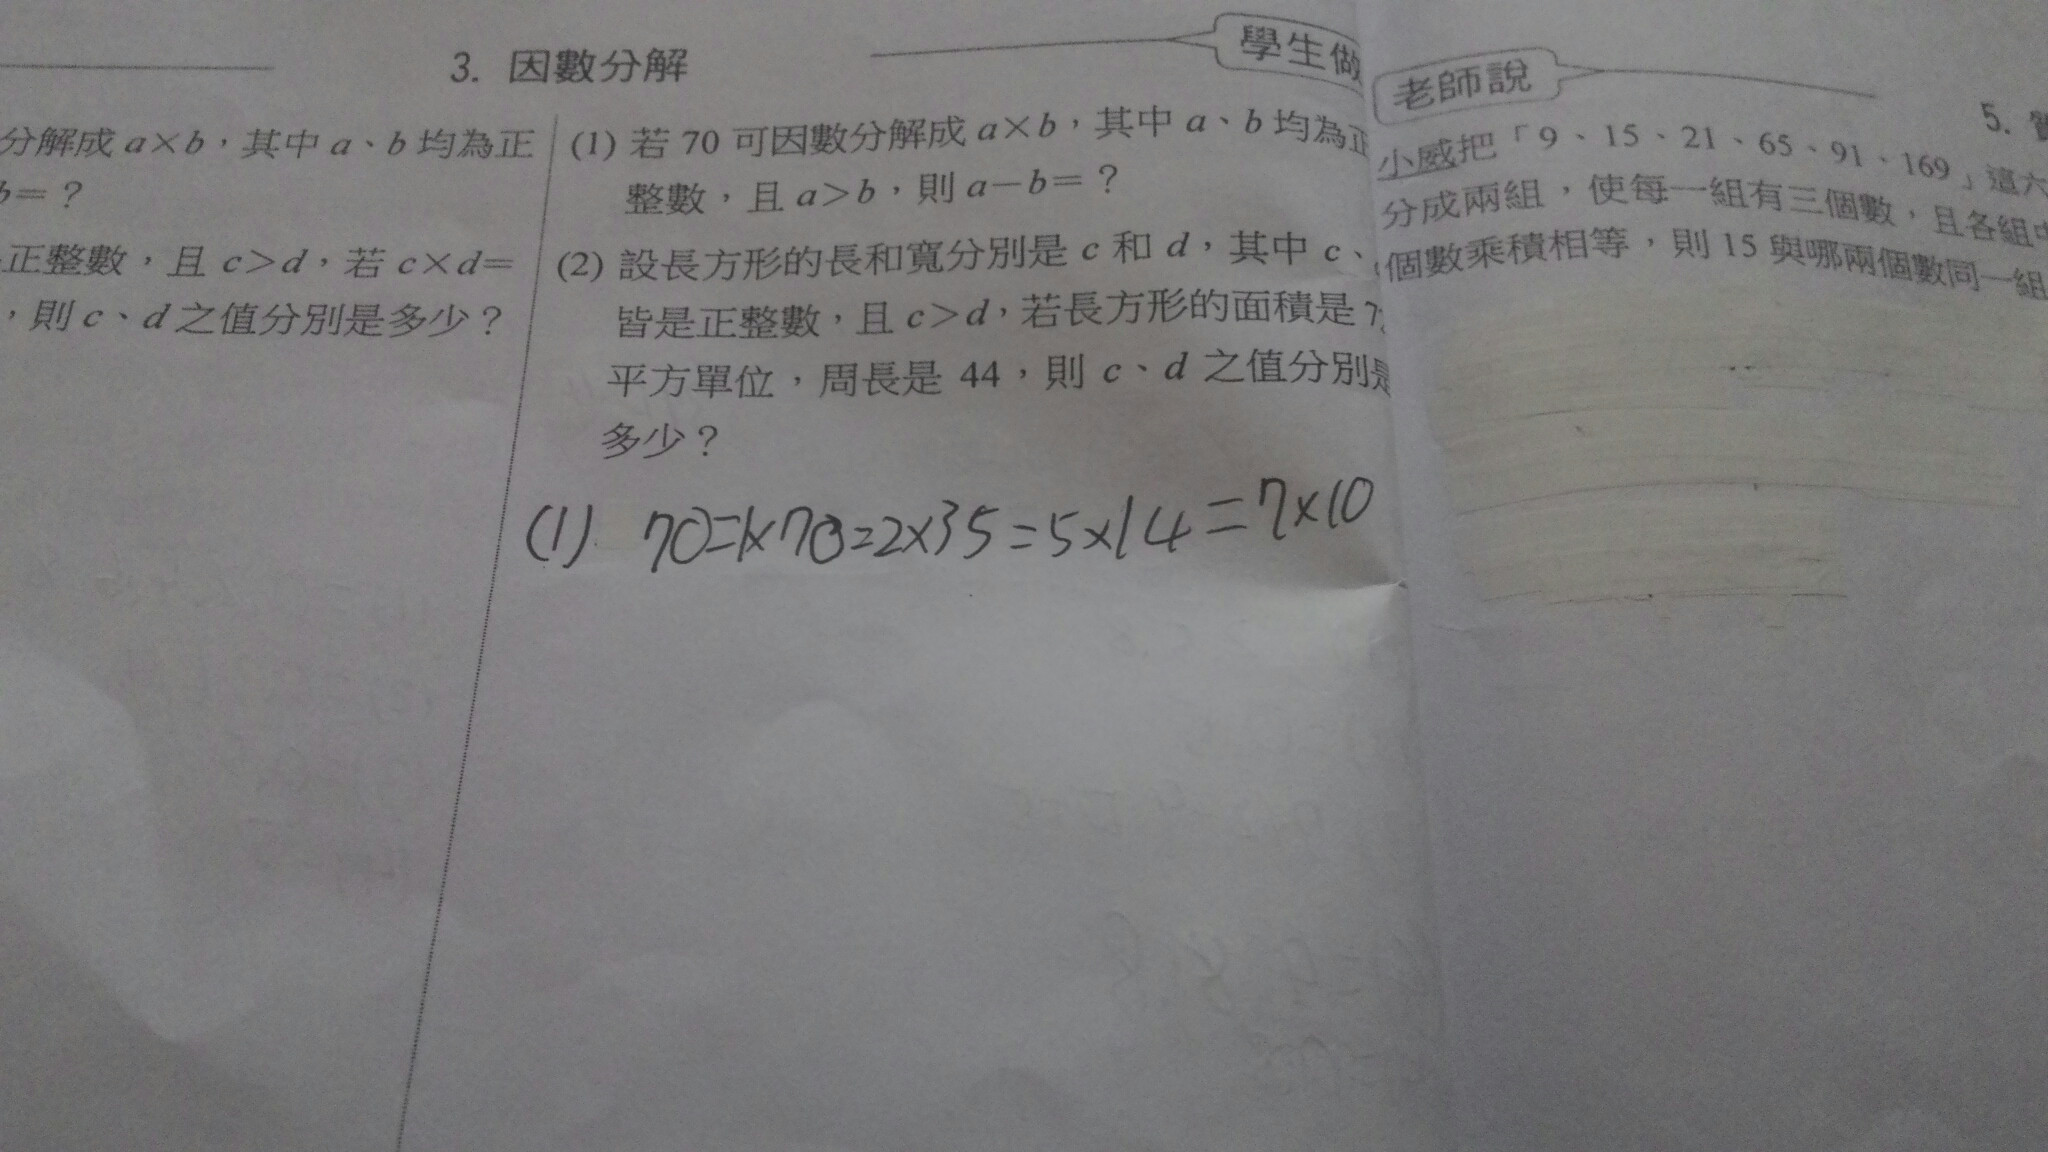 3. 因數分解
學生做
分解成 a×b，其中 a、b 均為正
b=？
正整數，且 c>d，若 c×d=
，則 c、d 之值分別是多少？
(1) 若 70 可因數分解成 a×b，其中 a、b 均為正
整數，且 a>b，則 a-b=？
(2) 設長方形的長和寬分別是 c 和 d，其中 c、
皆是正整數，且 c>d，若長方形的面積是 7
平方單位，周長是 44，則 c、d 之值分別是
多少？
(1) 70=1×70=2×35=5×14=7×10
老師說
5.
小威把「9、15、21、65、91、169」這六
分成兩組，使每一組有三個數，且各組中
個數乘積相等，則 15 與哪兩個數同一組